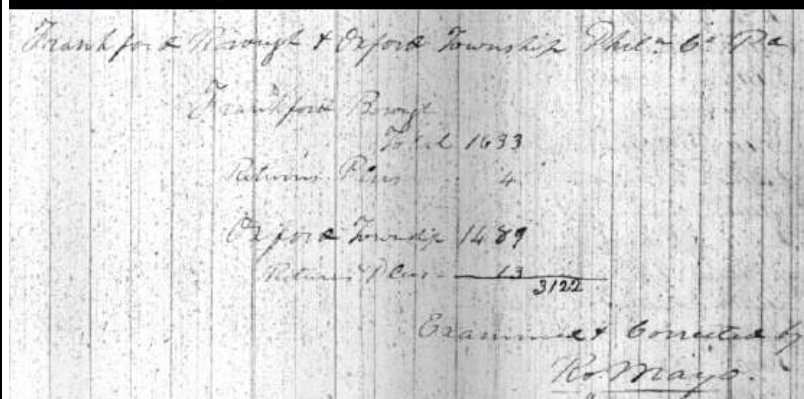 Frankford Borough & Oxford Township Phila Co Pa
Frankford Borough
Total 1633
Returns Plus 4
Oxford Township 1489
Returns Plus 13
3122
Examined & Corrected by
Ro. Mayo.